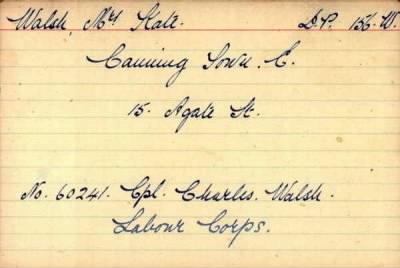 Walsh, Mrs Kate. D.P. 156. W.
Canning Town. E.
15. Agate St.
No. 60241. Cpl. Charles. Walsh.
Labour Corps.